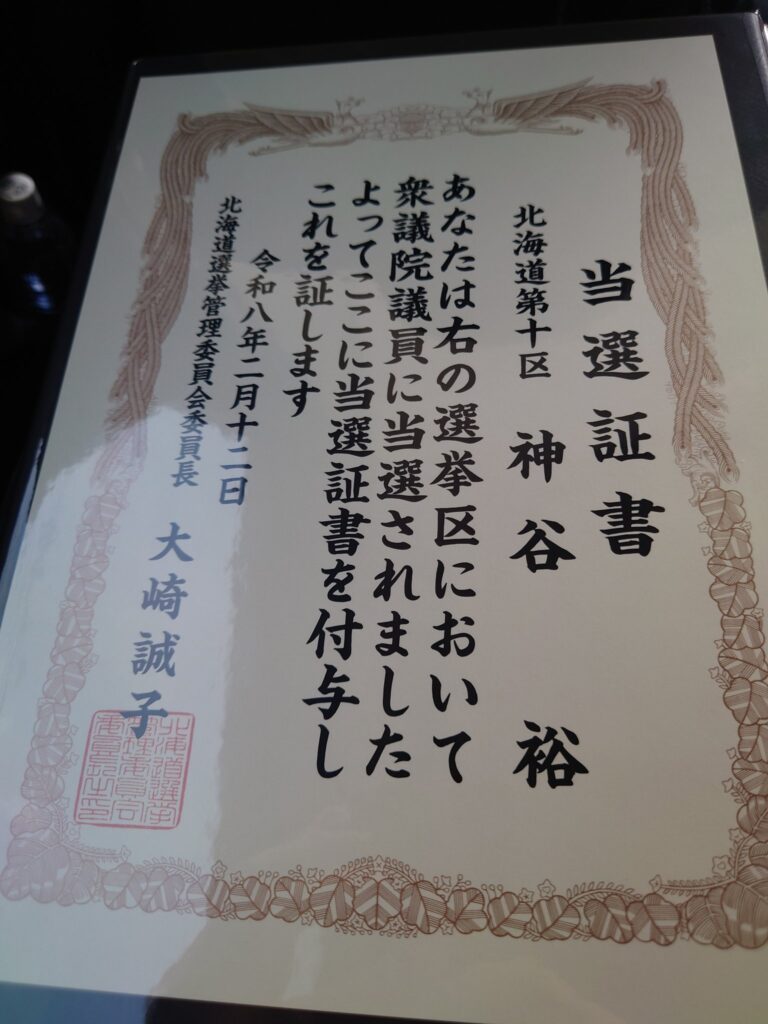 当選証書
北海道第十区 神谷 裕
あなたは右の選挙区において
衆議院議員に当選されました
よってここに当選証書を付与し
これを証します
令和八年二月十二日
北海道選挙管理委員会委員長 大崎誠子
北海道選挙
管理委員会
委員長之印